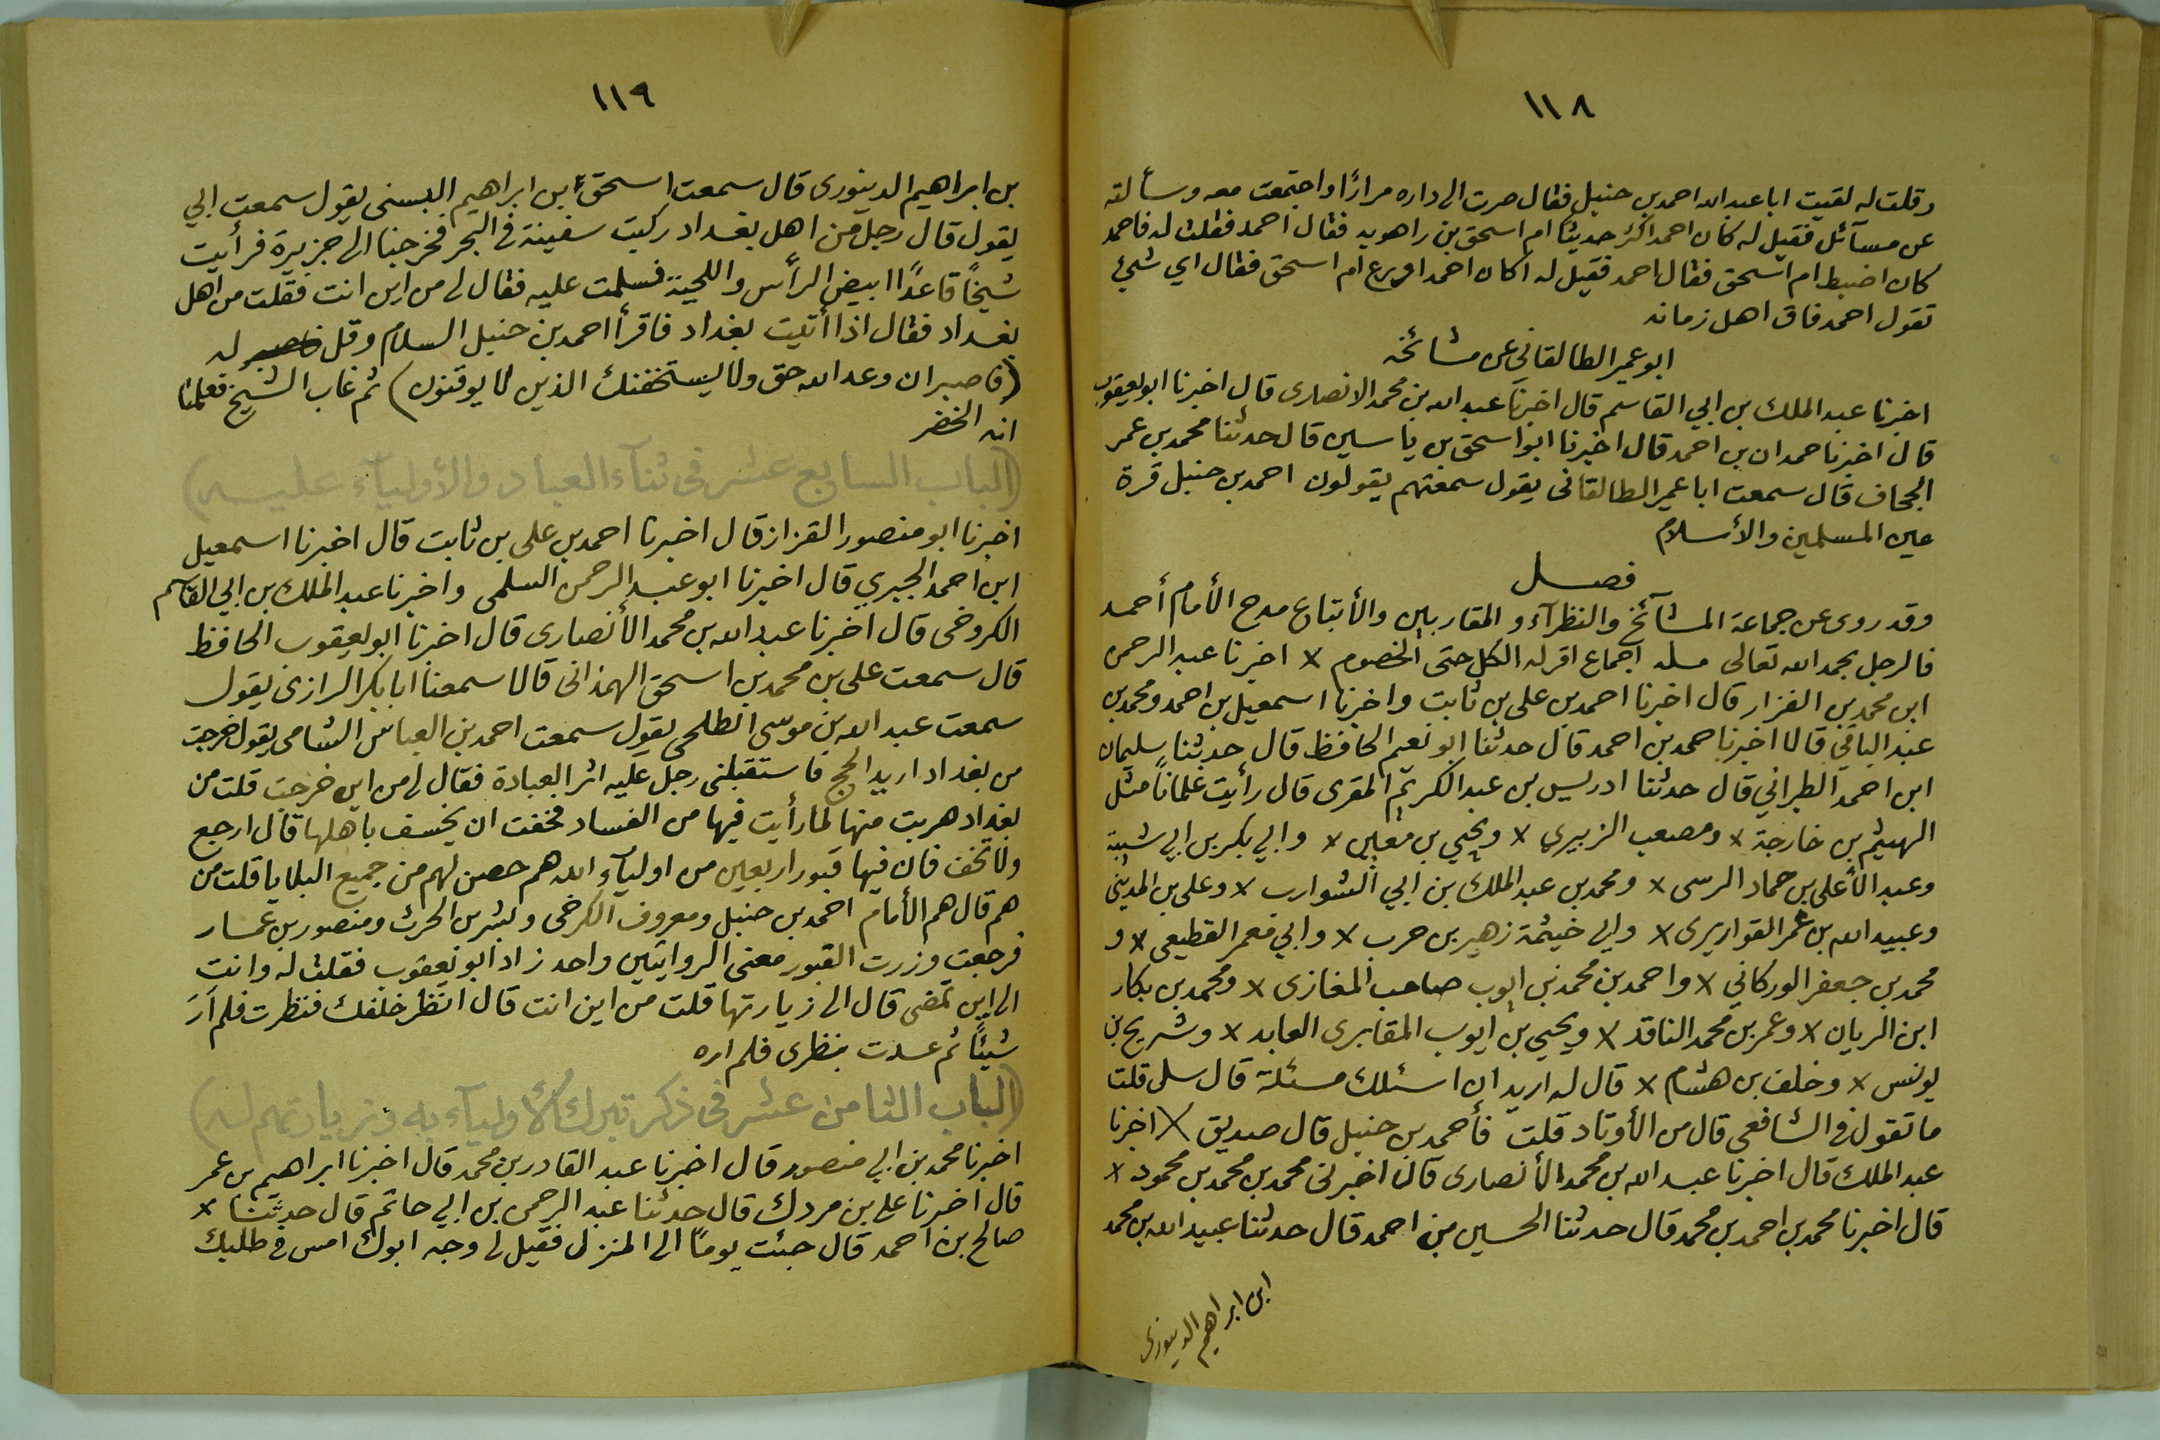 ١١٨
وقلت له لقيت ابا عبد الله احمد بن حنبل فقال صرت الى داره مرارًا واجتمعت معه وسألته
عن مسآئل فقيل له كان احمد اكثر حديثا ام اسحق بن راهويه فقال احمد فقلت له فاحمد
كان اضبط ام اسحق فقال احمد فقيل له اكان احمد اورع ام اسحق فقال اي شئ
تقول احمد فاق اهل زمانه
ابو عمير الطالقاني عن مشائخه
اخبرنا عبد الملك بن ابي القاسم قال اخبرنا عبد الله بن محمد الانصارى قال اخبرنا ابو يعقوب
قال اخبرنا حمدان بن احمد قال اخبرنا ابو اسحق بن ياسين قال حدثنا محمد بن عمر
الجحاف قال سمعت ابا عمير الطالقانى يقول سمعتهم يقولون احمد بن حنبل قرة
عين المسلمين والأسلام
فصل
وقد روى عن جماعة المشآئخ والنظرآء و المقاربين والأتباع مدح الأمام أحمد
فالرجل بحمد الله تعالى مسئلة اجماع اقر له الكل حتى الخصوم x اخبرنا عبد الرحمن
ابن محمد بن القزاز قال اخبرنا احمد بن على بن ثابت واخبرنا اسمعيل بن احمد ومحمد بن
عبد الباقى قالا اخبرنا حمد بن احمد قال حدثنا ابو نعيم الحافظ قال حدثنا سليمان
ابن احمد الطبراني قال حدثنا ادريس بن عبد الكريم المقرى قال رأيت علماناً مثل
الهيثم بن خارجة x ومصعب الزبيري x ويحيي بن معين x وابي بكر بن ابي شيبة
وعبد الأعلى بن حماد الرسى x ومحمد بن عبد الملك بن ابي الشوارب x وعلى بن المديني
وعبيد الله بن عمر القواريرى x وابي خيثمة زهير بن حرب x وابي معمر القطيعى x و
محمد بن جعفر الوركاني x واحمد بن محمد بن ايوب صاحب المغازى x ومحمد بن بكار
ابن الريان x وعمر بن محمد الناقد x ويحيي بن ايوب المقابرى العابد x وشريح بن
يونس x وخلف بن هشام x قال له اريد ان اسئلك مسئلة قال سل قلت
ما تقول في الشافعى قال من الأوتاد قلت فأحمد بن حنبل قال صديق x اخبرنا
عبد الملك قال اخبرنا عبد الله بن محمد الأنصارى قال اخبرنى محمد بن محمد بن محمود x
قال اخبرنا محمد بن احمد بن محمد قال حدثنا الحسين بن احمد قال حدثنا عبيد الله بن محمد
ابن ابراهيم الدينورى
١١٩
بن ابراهيم الدينورى قال سمعت اسحق ابن ابراهيم البسنى يقول سمعت ابي
يقول قال رجل من اهل بغداد ركبت سفينة في البحر فخرجنا الى جزيرة فرأيت
شيخًا قاعدًا ابيض الرأس واللحية فسلمت عليه فقال لى من اين انت فقلت من اهل
بغداد فقال اذا أتيت بغداد فاقرأ احمد بن حنبل السلام وقل له
(فاصبر ان وعد الله حق ولا يستخفنك الذين لا يوقنون) ثم غاب الشيخ فعلمنا
انه الخضر
(الباب السابع عشر فى ثنآء العباد والأوليآء عليه)
اخبرنا ابو منصور القزاز قال اخبرنا احمد بن على بن ثابت قال اخبرنا اسمعيل
ابن احمد الجيري قال اخبرنا ابو عبد الرحمن السلمى واخبرنا عبد الملك بن ابي القاسم
الكروخى قال اخبرنا عبد الله بن محمد الأنصارى قال اخبرنا ابو يعقوب الحافظ
قال سمعت على بن محمد بن اسحق الهمذانى قالا سمعنا ابا بكر الرازى يقول
سمعت عبد الله بن موسى الطلحى يقول سمعت احمد بن العباس الشامى يقول خرجت
من بغداد اريد الحج فاستقبلنى رجل عليه اثر العبادة فقال لى من اين خرجت قلت من
بغداد هربت منها لما رأيت فيها من الفساد فخفت ان يخسف باهلها قال ارجع
ولا تخف فان فيها قبور اربعين من اوليآء الله هم حصن لهم من جميع البلايا قلت من
هم قال هم الأمام احمد بن حنبل ومعروف الكرخى وبشر بن الحرث ومنصور بن عمار
فرجعت وزرت القبور معنى الروايتين واحد زاد ابو يعقوب فقلت له وانت
الى اين تمضى قال الى زيارتها قلت من اين انت قال انظر خلفك فنظرت فلم اَرَ
شيئًا ثم عدت بنظرى فلم اره
(الباب الثامن عشر فى ذكر تبرك الأوليآء به وزيارتهم له)
اخبرنا محمد بن ابي منصور قال اخبرنا عبد القادر بن محمد قال اخبرنا ابراهيم بن عمر
قال اخبرنا على بن مردك قال حدثنا عبد الرحمن بن ابي حاتم قال حدثنا x
صالح بن احمد قال جئت يومًا الى المنزل فقيل لى وجه ابوك امس في طلبك